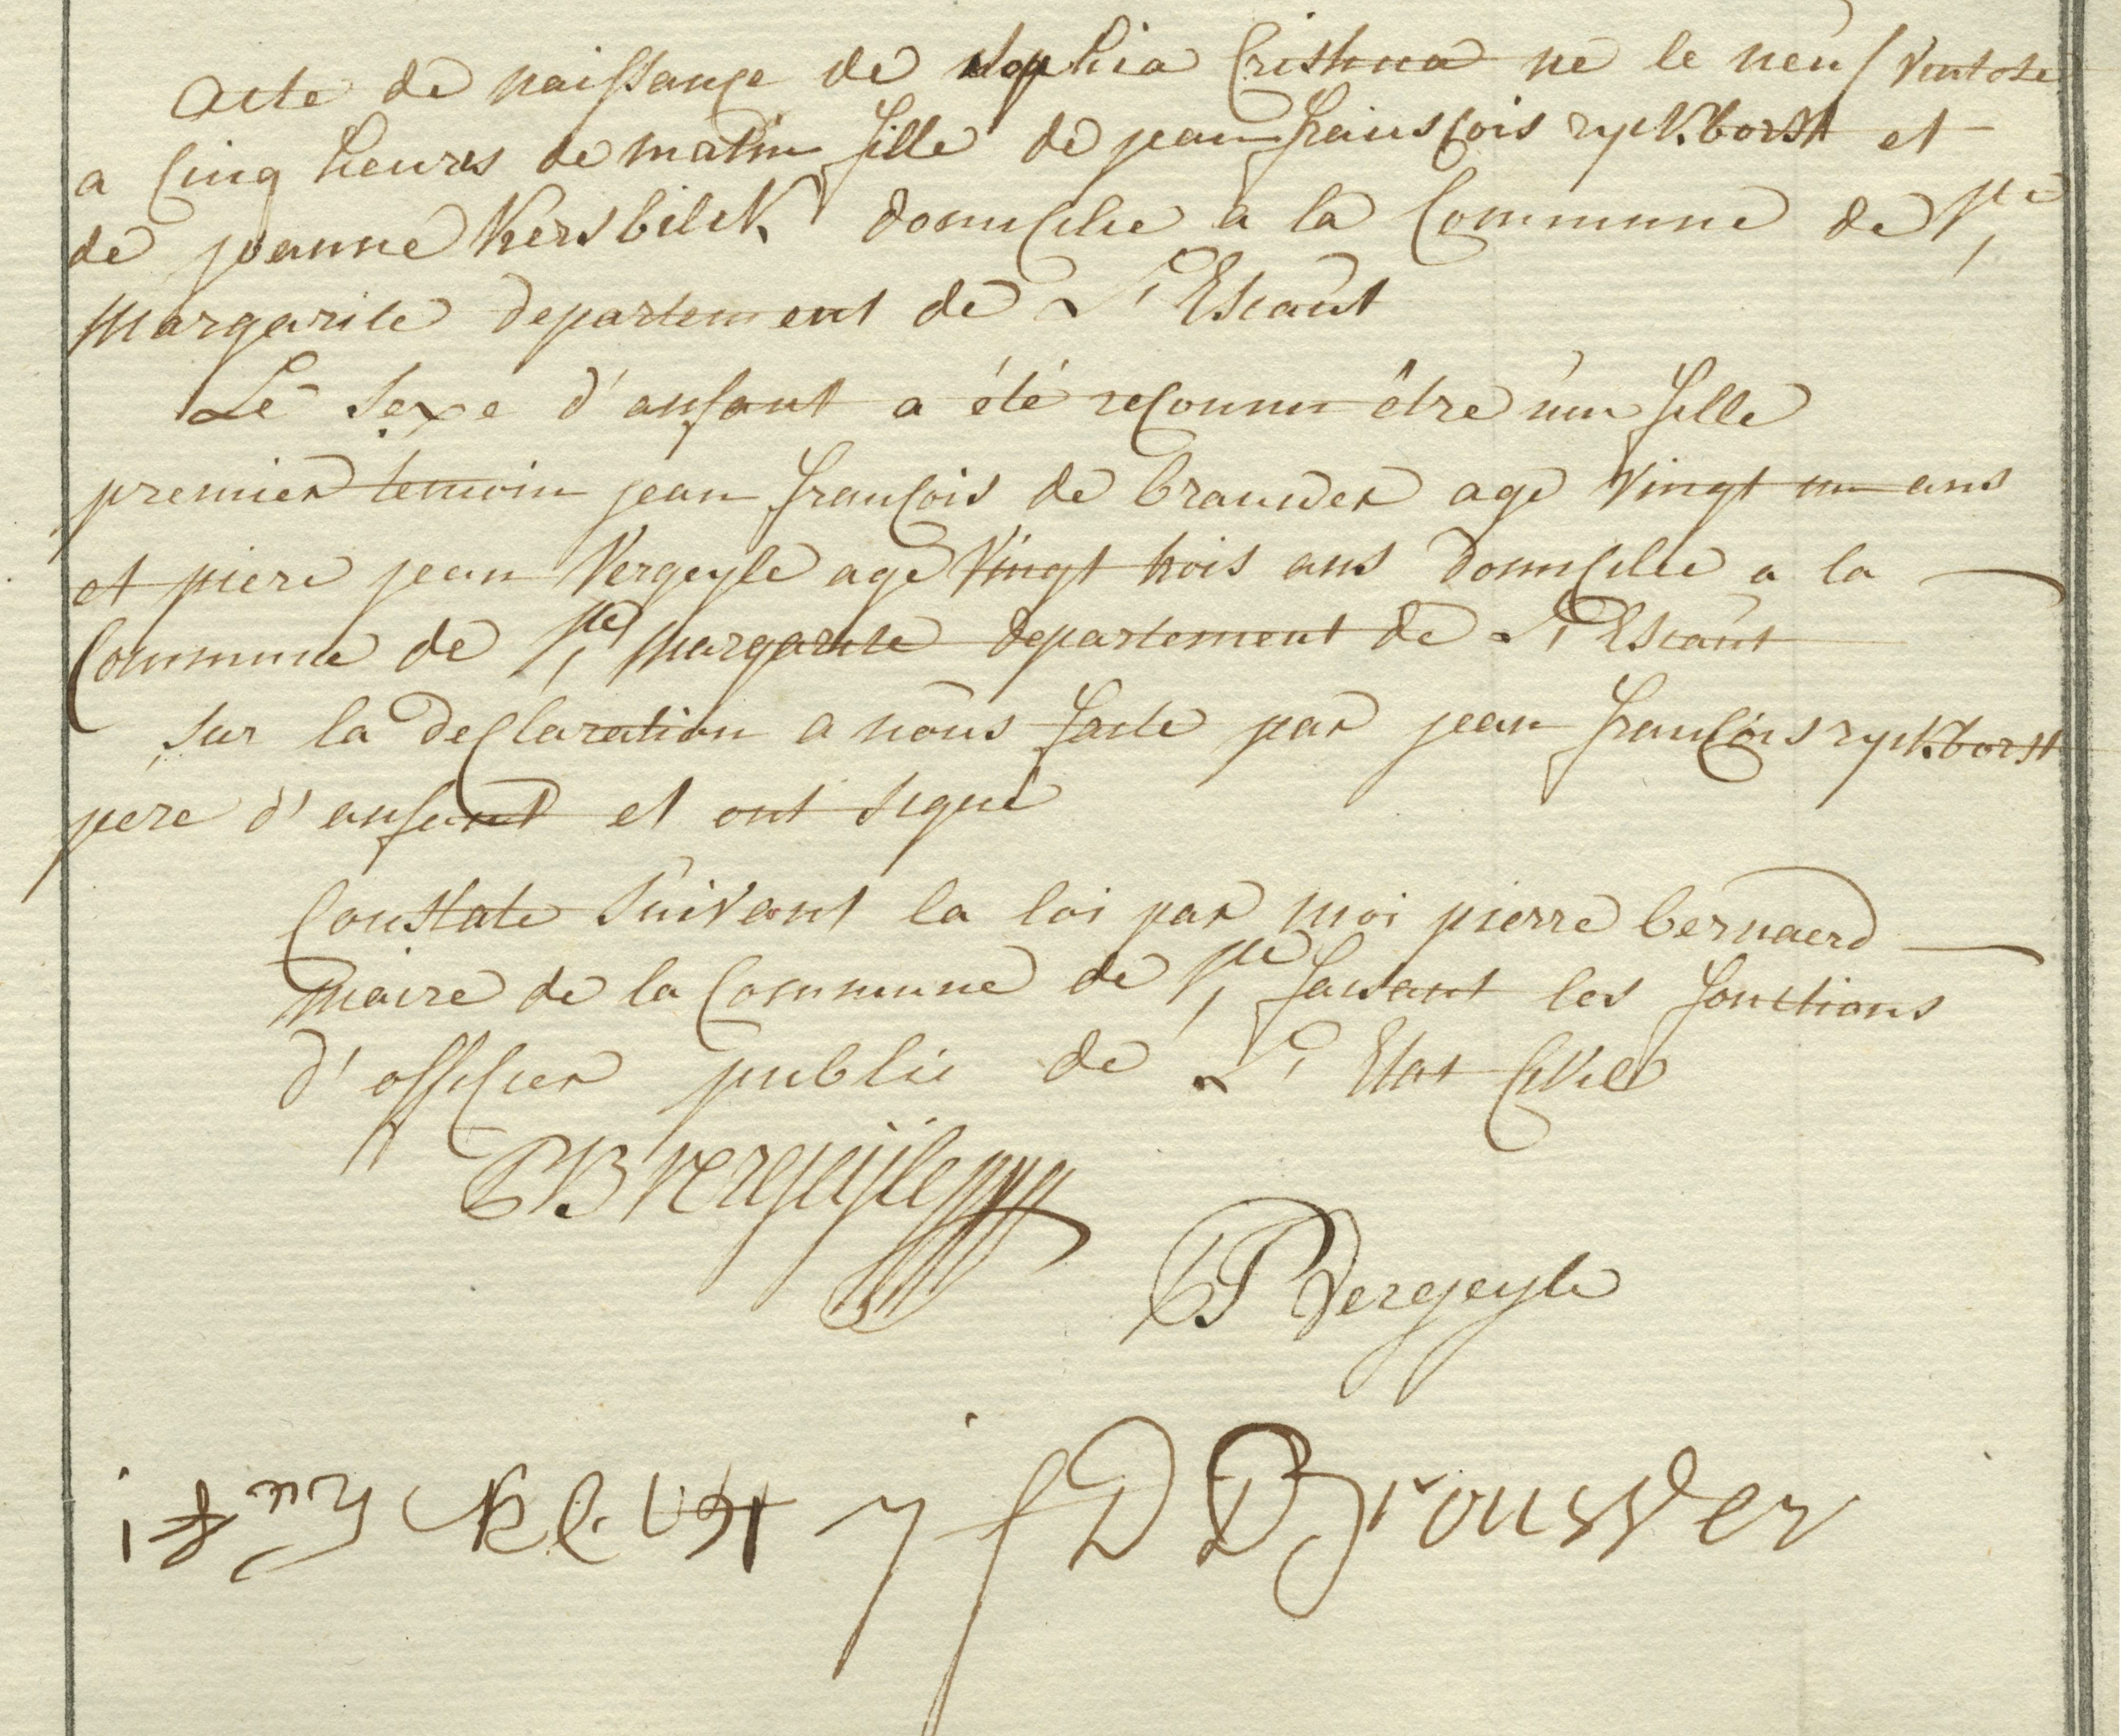 Acte de naissance de Sophia Cristina né le neuf ventose
a cinq heures de matin fille de jean fransçois ryckborst et
de joanne Kersbilck domicilie a la Commune de Ste
Margarite departement de L'Escaut
Le Sexe d'anfant a été reconnu être une fille
premier temoin jean françois de brauwer age vingt un ans
et piere jean Vergeyle age vingt trois ans domicilie a la
Commune de Ste Margarite departement de L'Escaut
sur la declaration a nous faite par jean françois ryckborst
pere d'anfant et ont signé
Constate suivant la loi par moi pierre bernaerd
Maire de la Commune de Ste faisant les fonctions
d'officier public de L'Etat Civil
PB Vergeijle
PJ Vergeyle
j f D Brouwer